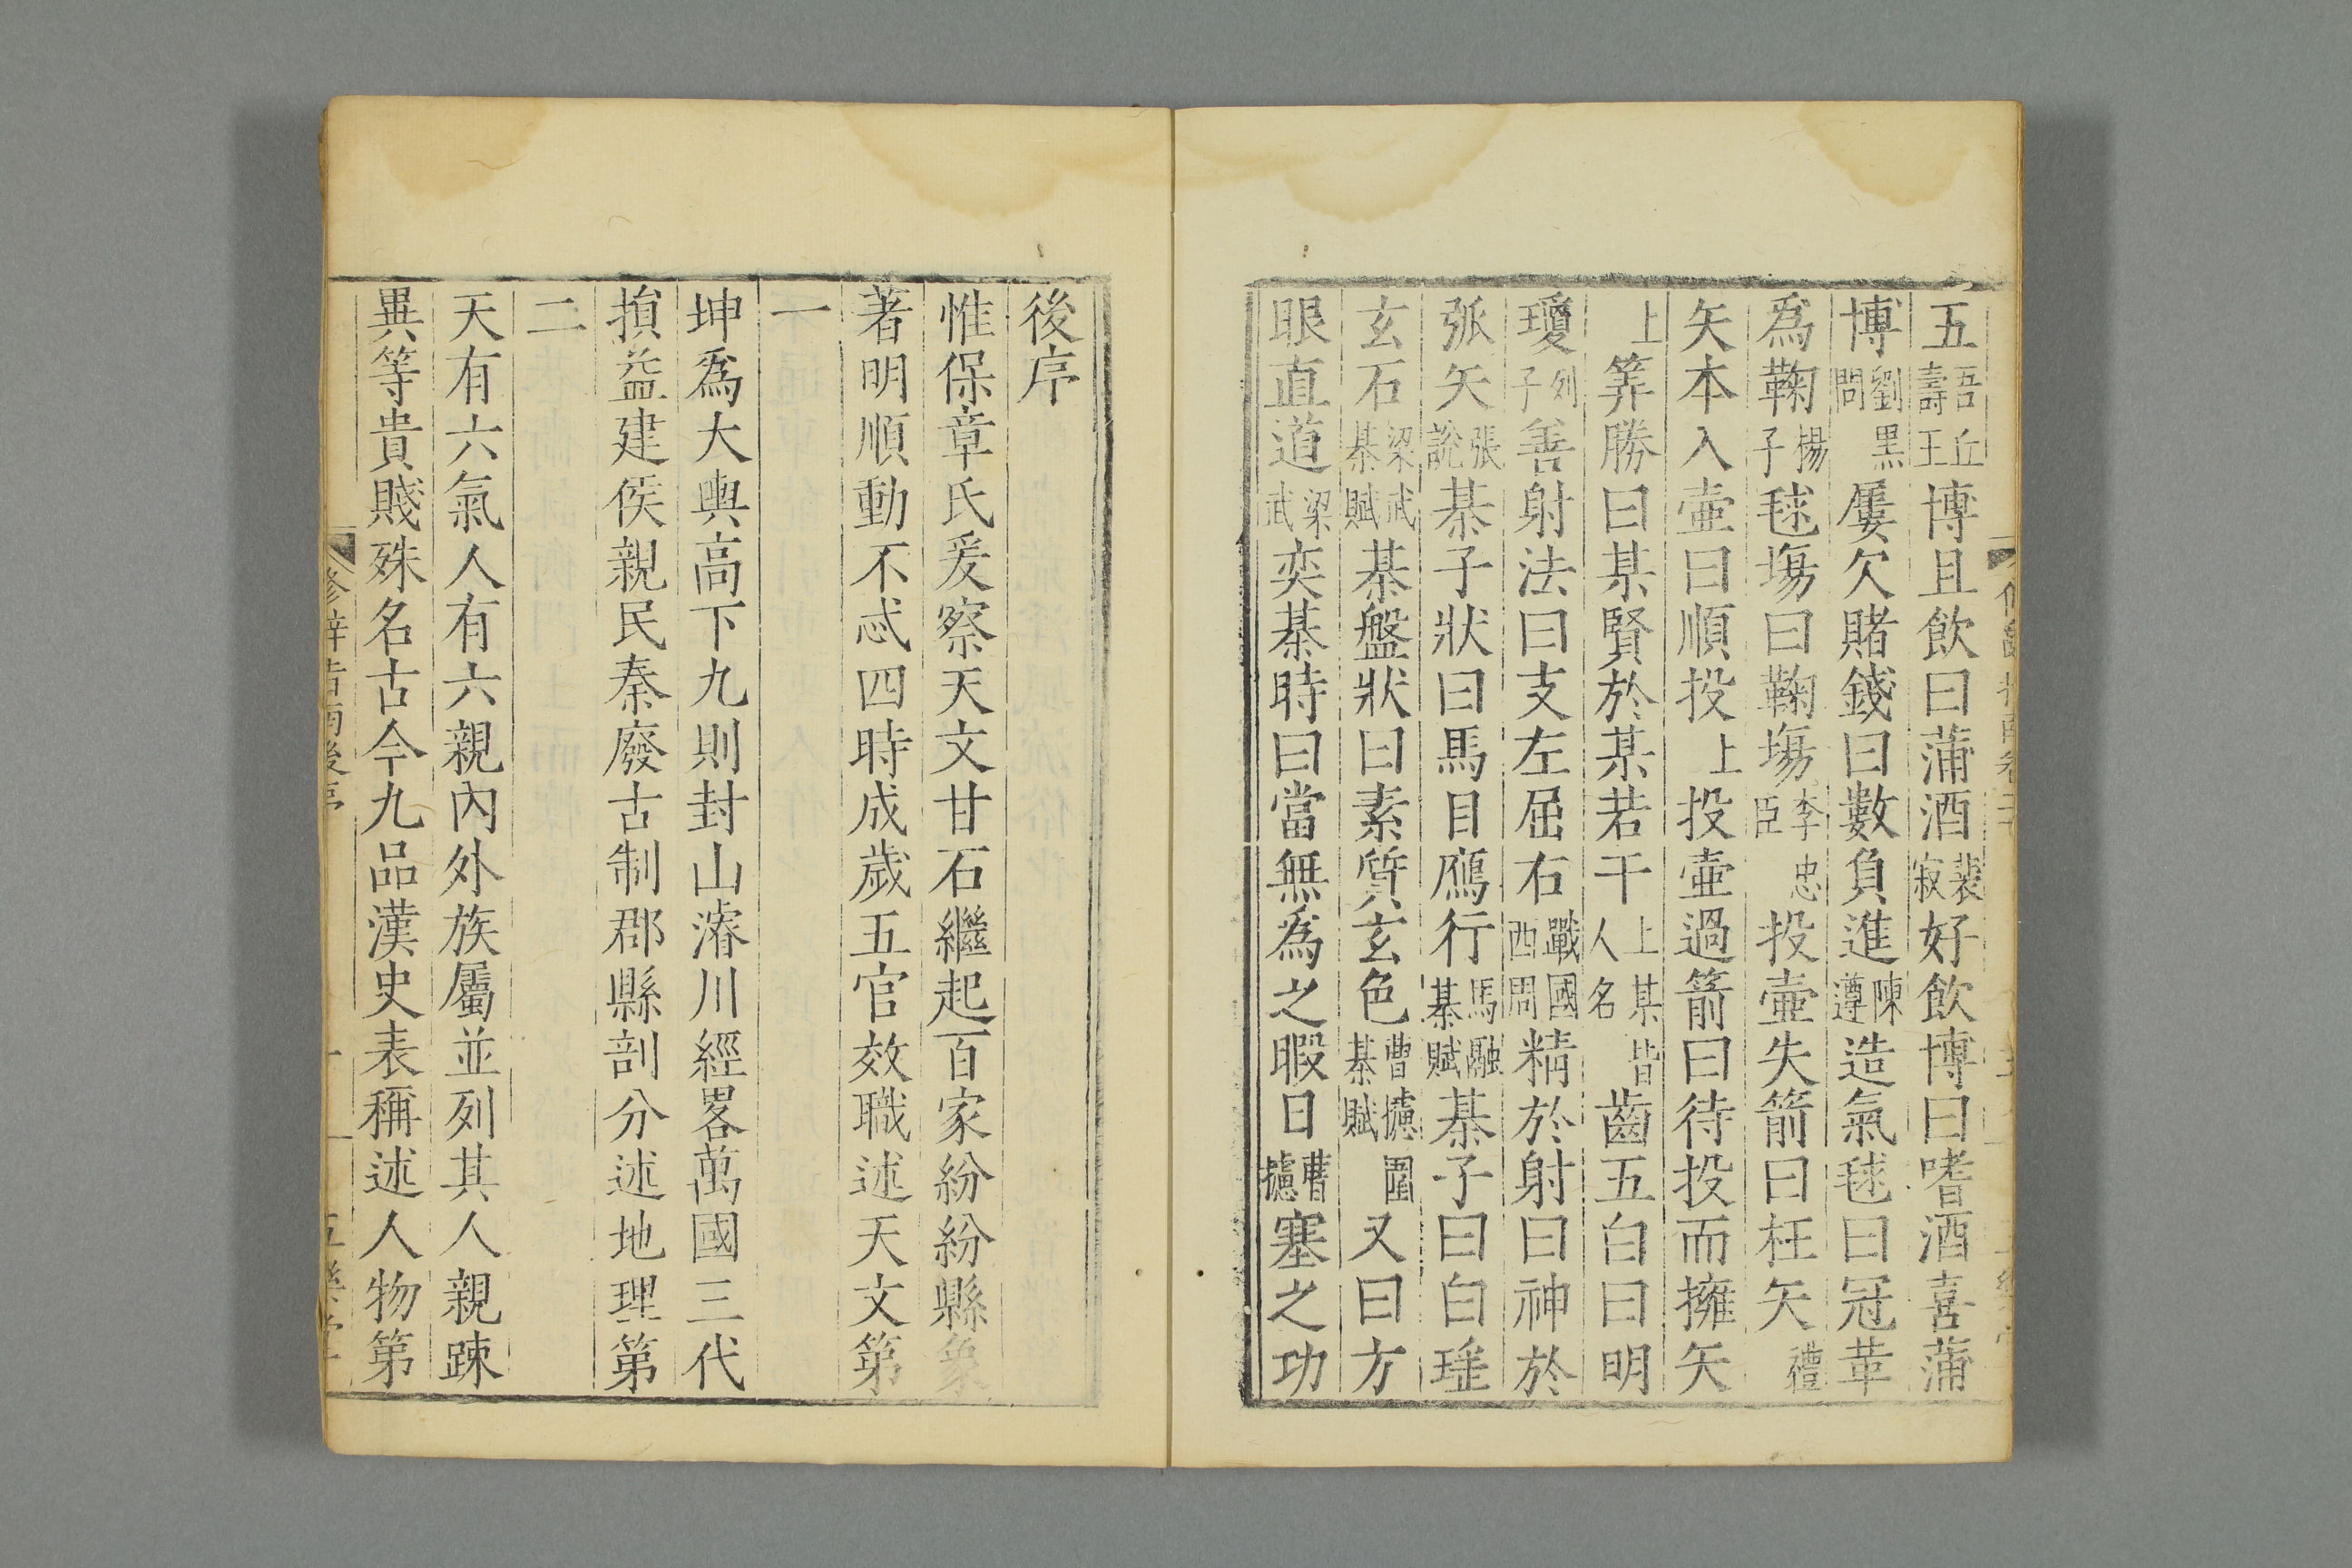 五吾丘壽王博且飲曰蒲酒裴寂好飲博曰嗜酒喜蒲
博劉黑問屢欠賭錢曰數負進陳遵造氣毬曰冠革
爲鞠楊子毬塲曰鞠塲李忠臣投壺失箭曰枉矢禮
矢本入壺曰順投上投壺過箭曰待投而擁矢
上筭勝曰某賢於某若干上某人名皆齒五白曰明
瓊列子善射法曰支左屈右戰國西周精於射曰神於
弧矢張說棊子狀曰馬目鴈行馬融棊賦棊子曰白瑶
玄石梁武棊賦棊盤狀曰素質玄色曹攄圍棊賦又曰方
眼直道梁武奕棊時曰當無為之暇日曹攄塞之功
後序
惟保章氏爰察天文甘石繼起百家紛紛縣象
著明順動不忒四時成歲五官效職述天文第
一
坤爲大輿高下九則封山濬川經畧萬國三代
損益建侯親民秦廢古制郡縣剖分述地理第
二
天有六氣人有六親內外族屬並列其人親踈
異等貴賤殊名古今九品漢史表稱述人物第